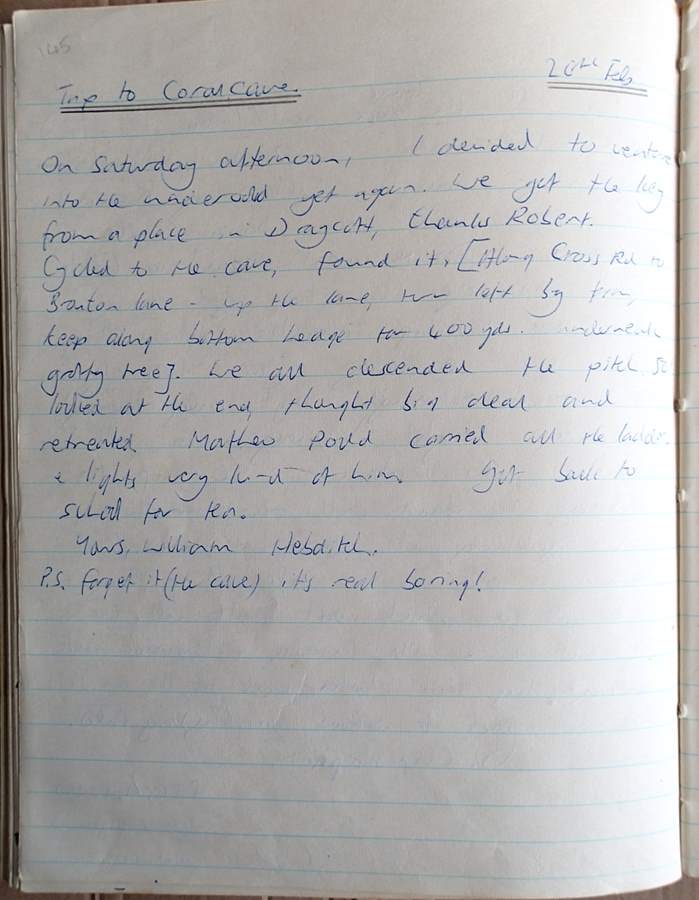 145
20th Feb
Trip to Coral Cave.
On Saturday afternoon, I decided to venture
into the underworld yet again. We got the key
from a place in Draycott, thanks Robert.
Cycled to the cave, found it, [Along Cross Rd to
lane - up the lane, turn left by farm,
keep along bottom hedge for 400 yds. underneath
grotty tree]. We all descended the pitch so
looked at the end, thought big deal and
retreated. Mathew carried all the ladders
& lights very kind of him. Got back to
school for tea.
Yours, William Hebditch.
P.S. forget it (the cave) it's real boring!